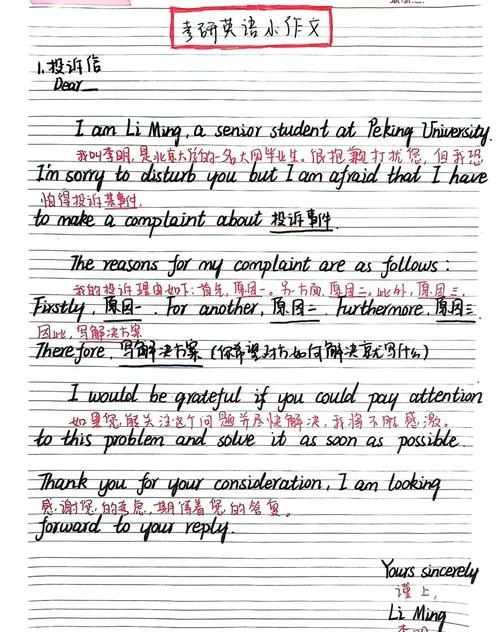 考研英语小作文
1.投诉信
Dear
I am Li Ming, a senior student at Peking University.
我叫李明,是北京大学的一名大四毕业生。很抱歉打扰您,但我恐
I'm sorry to disturb you but I am afraid that I have
怕得投诉某事件.
to make a complaint about 投诉事件.
The reasons for my complaint are as follows:
我的投诉理由如下:首先,原因一。另一方面,原因二,此外,原因三.
Firstly, 原因一. For another, 原因二. Furthermore, 原因三.
因此,写解决方案
Therefore, 写解决方案 (你希望对方如何解决就写什么)
I would be grateful if you could pay attention
如果您能关注这个问题并尽快解决,我将不胜感激.
to this problem and solve it as soon as possible.
Thank you for your consideration, I am looking
感谢您的考虑,期待着您的答复。
forward to your reply.
Yours sincerely
谨上,
Li Ming
李明